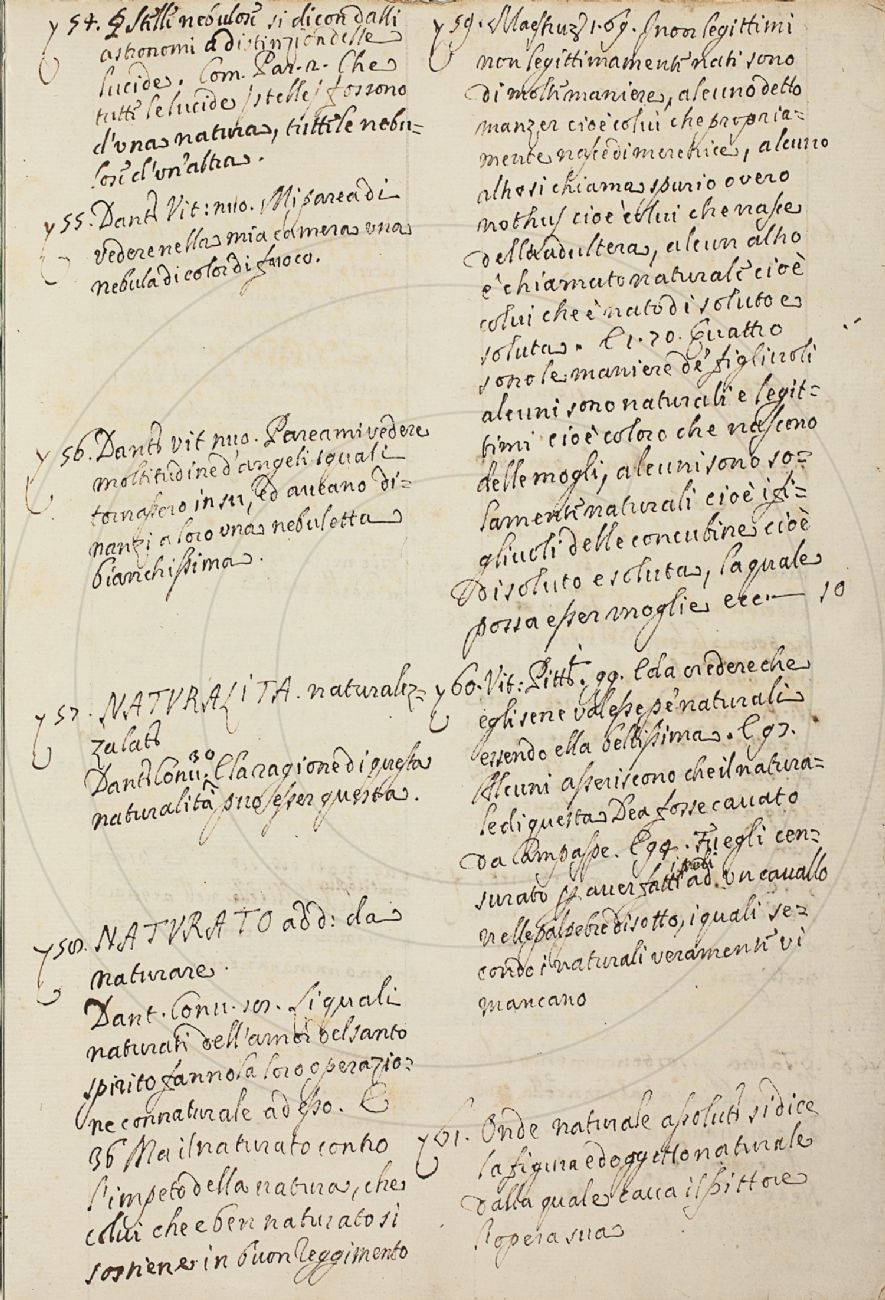 54. § Stelle nebulose si dicon dalli
astronomi a distinzion delle
lucide. Com. Par. 2. Che
tutte le lucide stelle fossono
d'una natura, tutte le nebu=
lose d'un'altra.
55. Dante Vit: nuo. Mi parea di
vedere nella mia camera una
nebula di color di fuoco.
56. Dante vit nuo. Pareami vedere
moltitudine d'angeli i quali
tornassero in su, ed aveano di=
nanzi a loro una nebuletta
bianchissima.
57. NATVRALITA. naturalez=
za late
Dante Conu. 30. E la ragione di questa
naturalità puo esser questa.
58. NATVRATO add: da
naturare.
Dant. Conu. 101. Li quali
naturati dell'amor del santo
spirito fanno la loro operazio=
ne connaturale ad esso. E
36 Ma il naturato contro
l'impeto della natura, che
colui che e ben naturato si
sostiene in buon reggimento
59. Maestruz 1. 69. I non legittimi
non legittimamente nati sono
di molte maniere, alcuno detto
manzer cioè colui che propria=
mente nasce di meretrice, alcuno
altro si chiama spurio overo
nothus cioè colui che nasce
dell'adultera, alcun altro
è chiamato naturale cioè
colui che è nato di soluto e
soluta. E 1. 70. Quattro
sono le maniere de' figliuoli
alcuni sono naturali e legit=
timi cioè coloro che nascono
delle mogli, alcuni sono so=
lamente naturali cioè i fi=
gliuoli delle concubine cioè
di soluto e soluta, la quale
possa esser moglie ecc. — 10
60. Vit: Pitt. 99. E da credere che
egli se ne valesse pe' naturali
essendo ella bellissima. E 93.
Alcuni asseriscono che il natura=
le di questa Dea fosse cavato
da Campaspe. E 94. Fu egli cen=
surato p aver fatti i peli ad un cavallo
nelle palpebre di sotto, i quali se=
condo i naturali veramente vi
mancano
61. Onde naturale assolute si dice
la figura ed oggetto naturale
dalla quale cava il Pittore
l'opera sua